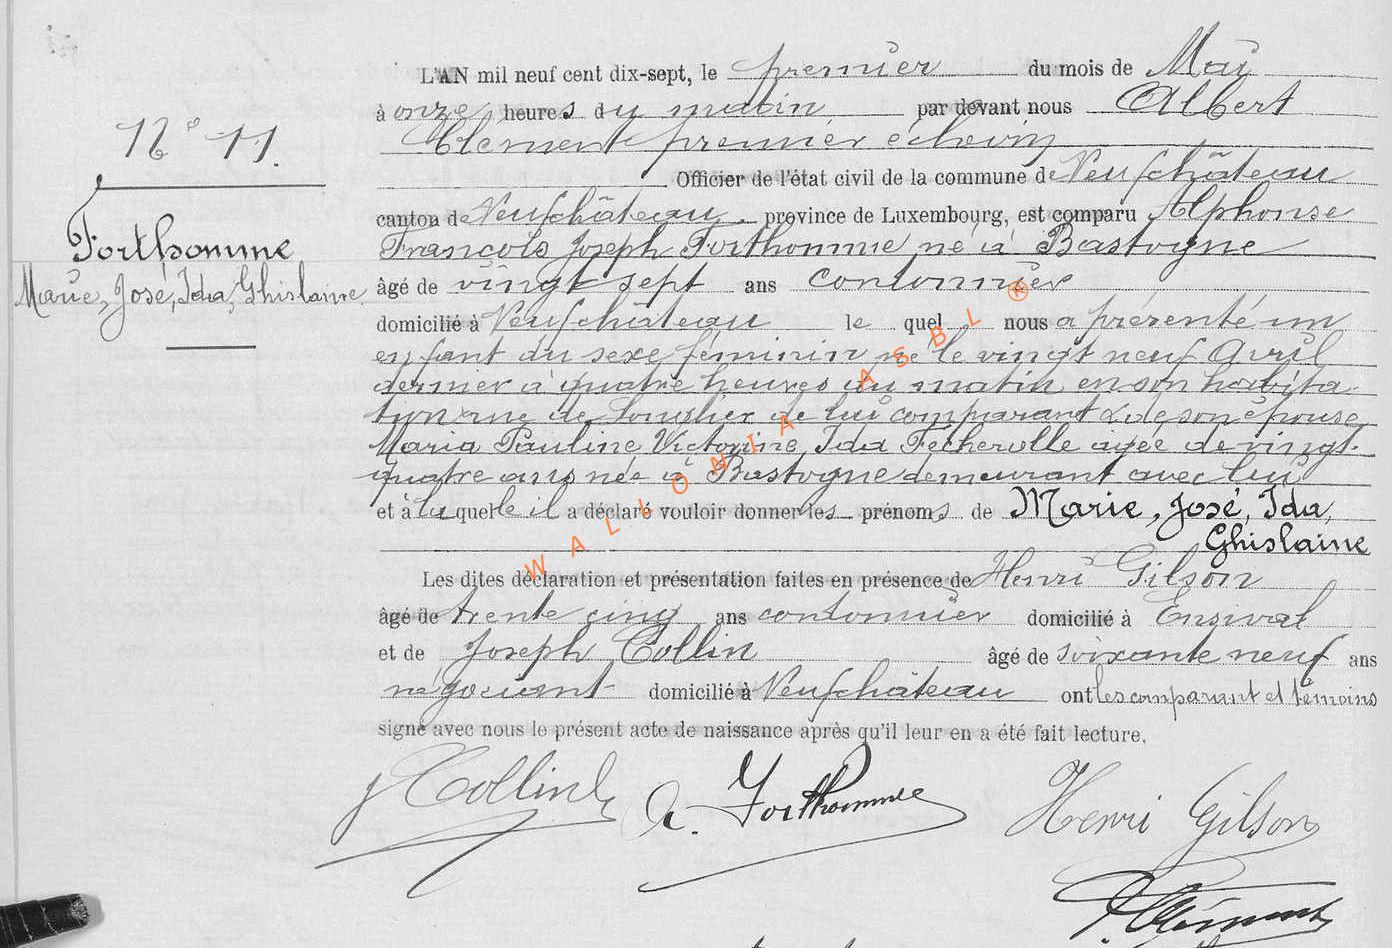 N° 11.
Forthomme
Marie, José, Ida, Ghislaine
L'AN mil neuf cent dix-sept, le premier du mois de Mai
à onze heures du matin, par devant nous Albert
Clément premier échevin
Officier de l'état civil de la commune de Neufchâteau
canton de Neufchâteau, province de Luxembourg, est comparu Alphonse
François Joseph Forthomme né à Bastogne
âgé de vingt sept ans cordonnier
domicilié à Neufchâteau le quel nous a présenté un
enfant du sexe féminin né le vingt neuf Avril
dernier à quatre heures du matin en son habita-
tion rue de Longlier de lui comparant & de son épouse
Maria Pauline Victorine Ida Fecherolle agée de vingt-
quatre ans née à Bastogne demeurant avec lui
et à laquelle il a déclaré vouloir donner les prénoms de Marie, José, Ida,
Ghislaine
Les dites déclaration et présentation faites en présence de Henri Gilson
âgé de trente cinq ans cordonnier domicilié à Ensival
et de Joseph Collin âgé de soixante neuf ans
négociant domicilié à Neufchâteau ont les comparant et témoins
signé avec nous le présent acte de naissance après qu'il leur en a été fait lecture.
J Collin A. Forthomme Henri Gilson
Clément
WALLONIA ASBL ®